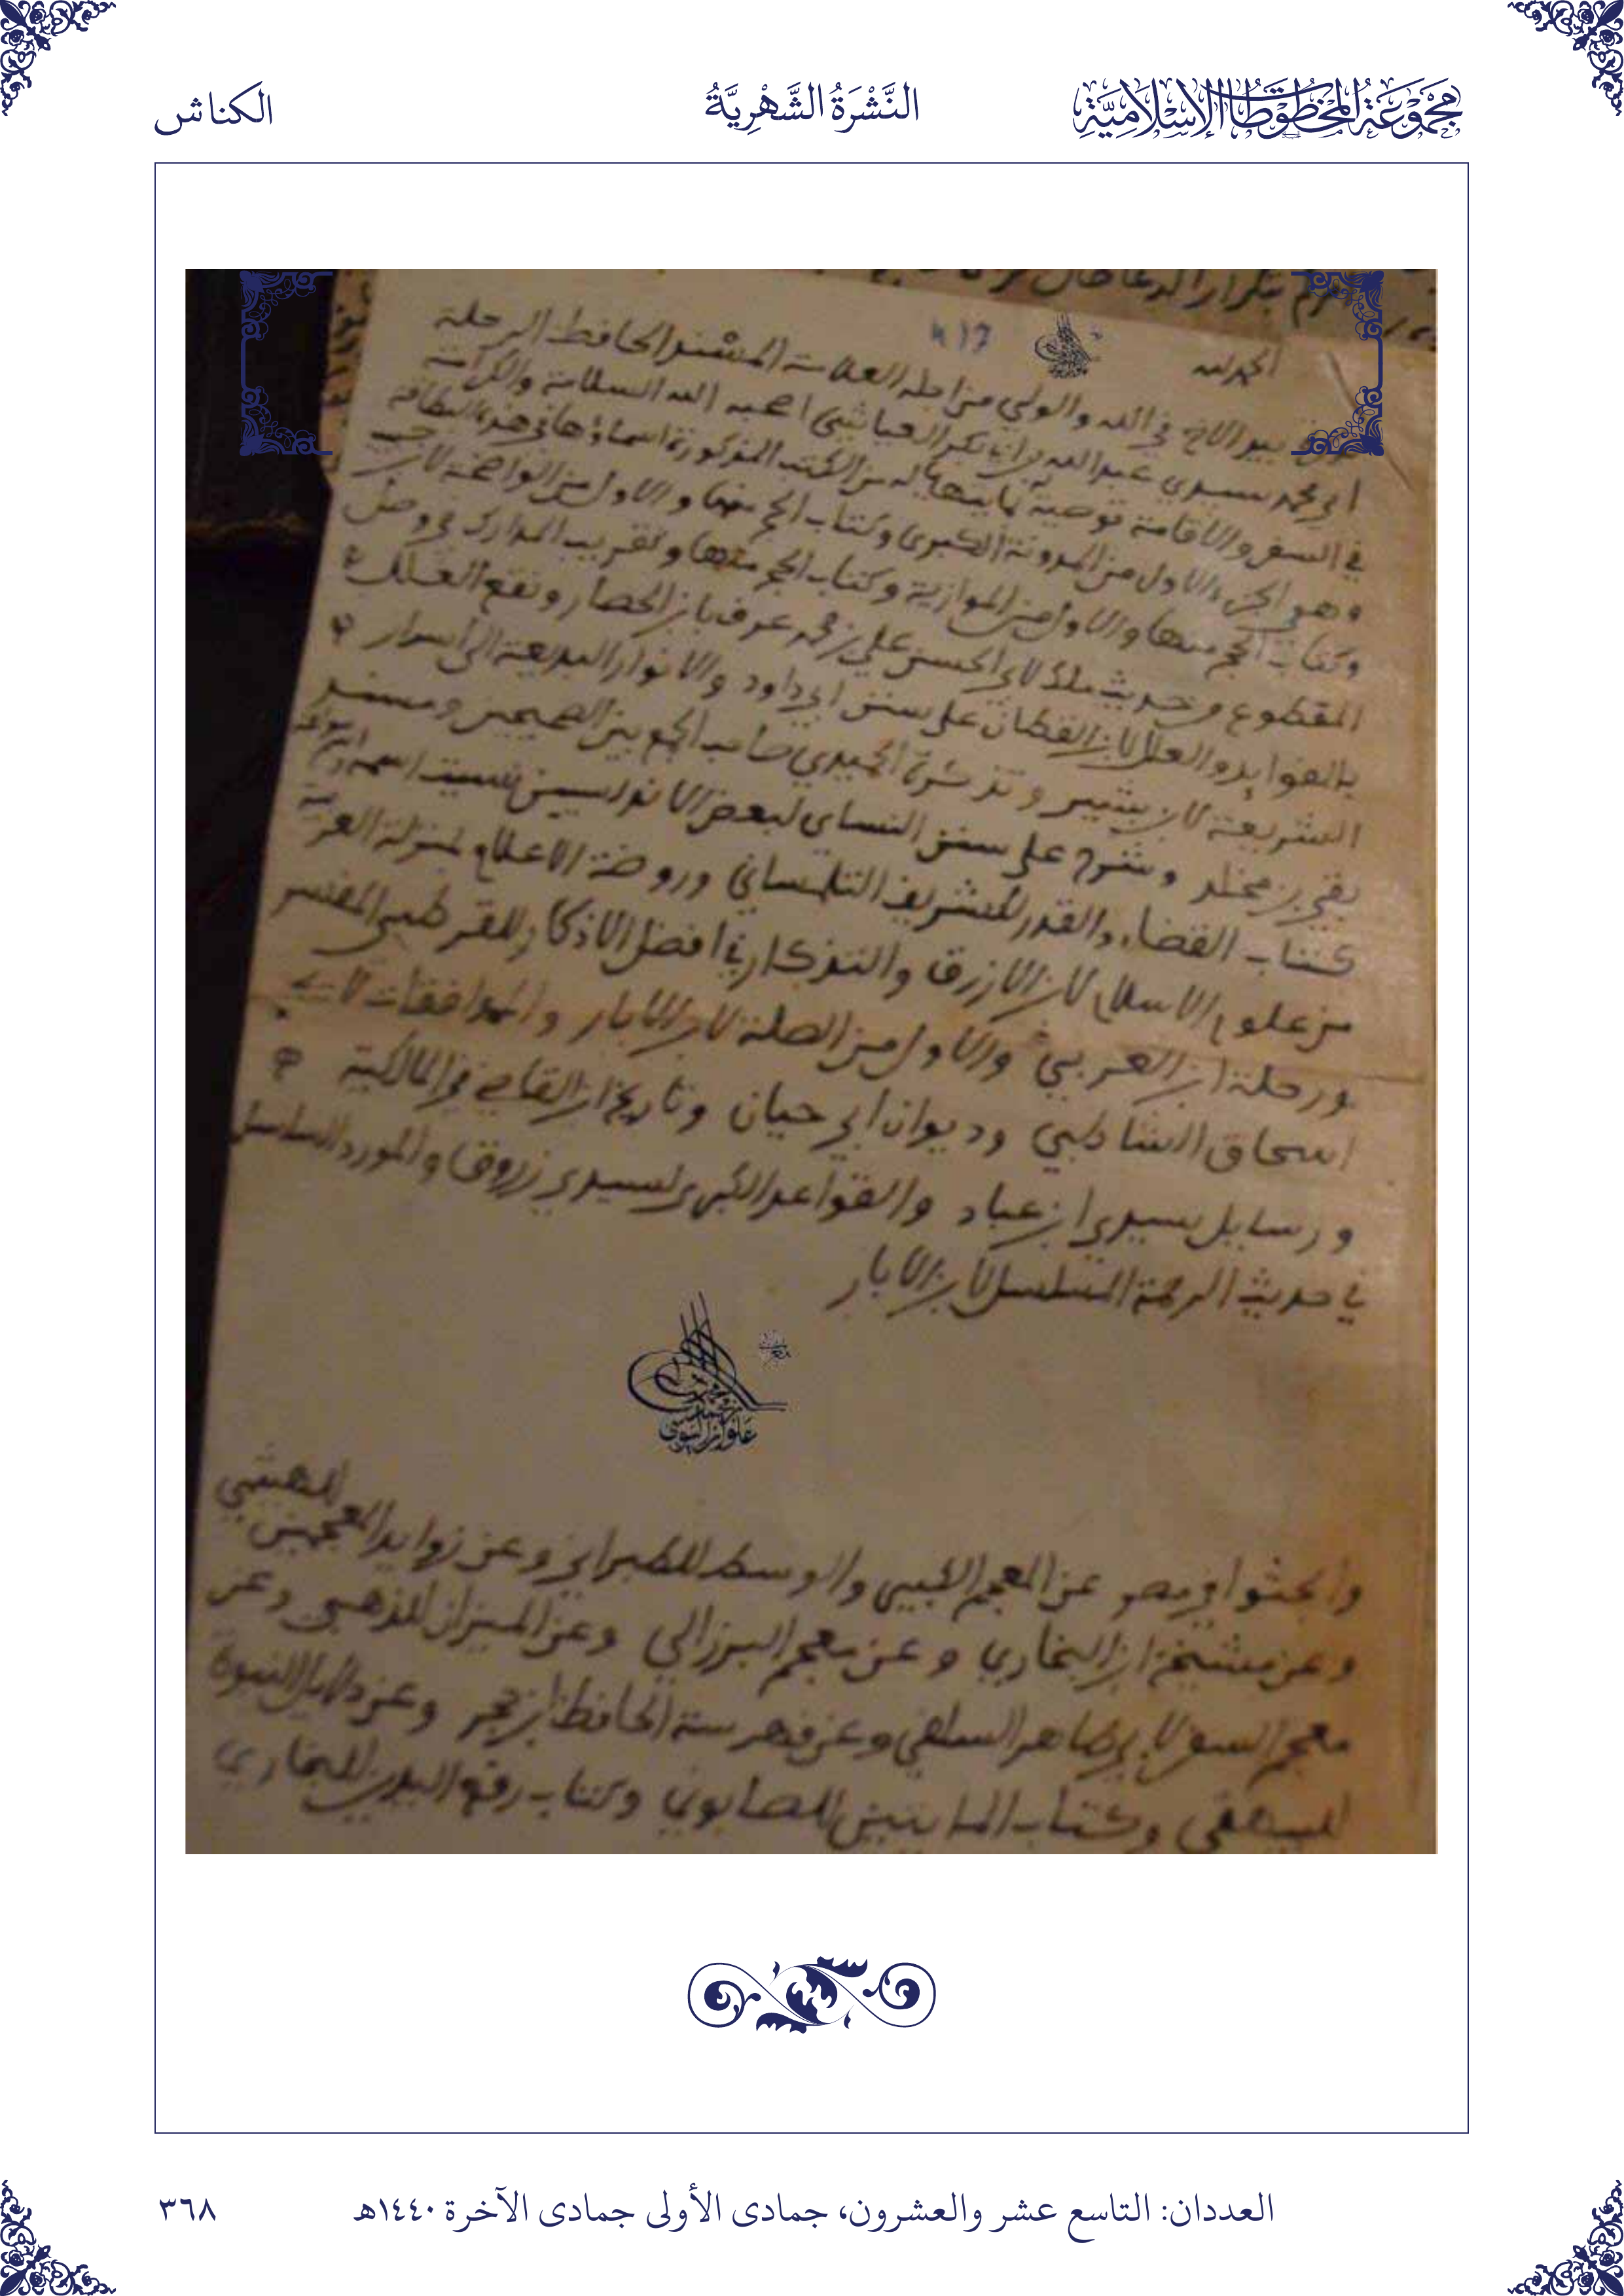 مجموعة المخطوطات الإسلامية
النَّشْرَةُ الشَّهْرِيَّةُ
الكناش
الحمد لله
بيد الاخ في الله والولي من اجله العلامة المسند الحافظ الرحلة
ابي محمد سيدي عبد الله بن ابي بكر العياشي اصحبه الله السلامة والكرامة
في السفر والاقامة توصية له من الكتب المذكورة اسماؤها في هذه البطاقة
وهو الجزء الاول من المدونة الكبرى وكتاب الحج منها والاول من الواضحة لابن حبيب
وكتاب الحج منها والاول من الموازية وكتاب الحج منها وتقريب المدارك في وصل
المقطوع من حديث ملك لابي الحسن علي بن محمد عرف بابن الحصار ونقع الغلل
بالفوايد والعلل لابن القطان على سنن ابي داود والانوار البديعة الى اسرار
الشريعة لابن وتذكرة الحميدي صاحب الجمع بين الصحيحين ومسند
بقي بن مخلد وشرح على سنن النساي لبعض الاندلسيين نسيت اسمه
كتاب القضاء والقدر للشريف التلمساني وروضة الاعلام بمنزلة العربية
من علوم الاسلام لابن الازرق والتذكار في افضل الاذكار للقرطبي المفسر
ورحلة ابن العربي والاول من الصلة لابن الابار والموافقات لابي
اسحاق الشاطبي وديوان ابي حيان وتاريخ ابن القاضي في المالكية
ورسايل سيدي ابن عباد والقواعد الكبرى لسيدي زروق والمورد السلسل
في حديث الرحمة المسلسل لابن الابار
وابحثوا في مصر عن المعجم الكبير والوسط للطبراني وعن زوايد المعجمين للهيثمي
وعن مشيخة ابن البخاري وعن معجم البرزالي وعن الميزان للذهبي وعن
معجم السفر لابي طاهر السلفي وعن فهرسة الحافظ ابن حجر وعن دلايل النبوة
للبيهقي وكتاب المايتين للصابوني وكتاب رفع اليدين للبخاري
العددان: التاسع عشر والعشرون، جمادى الأولى جمادى الآخرة ١٤٤٠هـ
٣٦٨